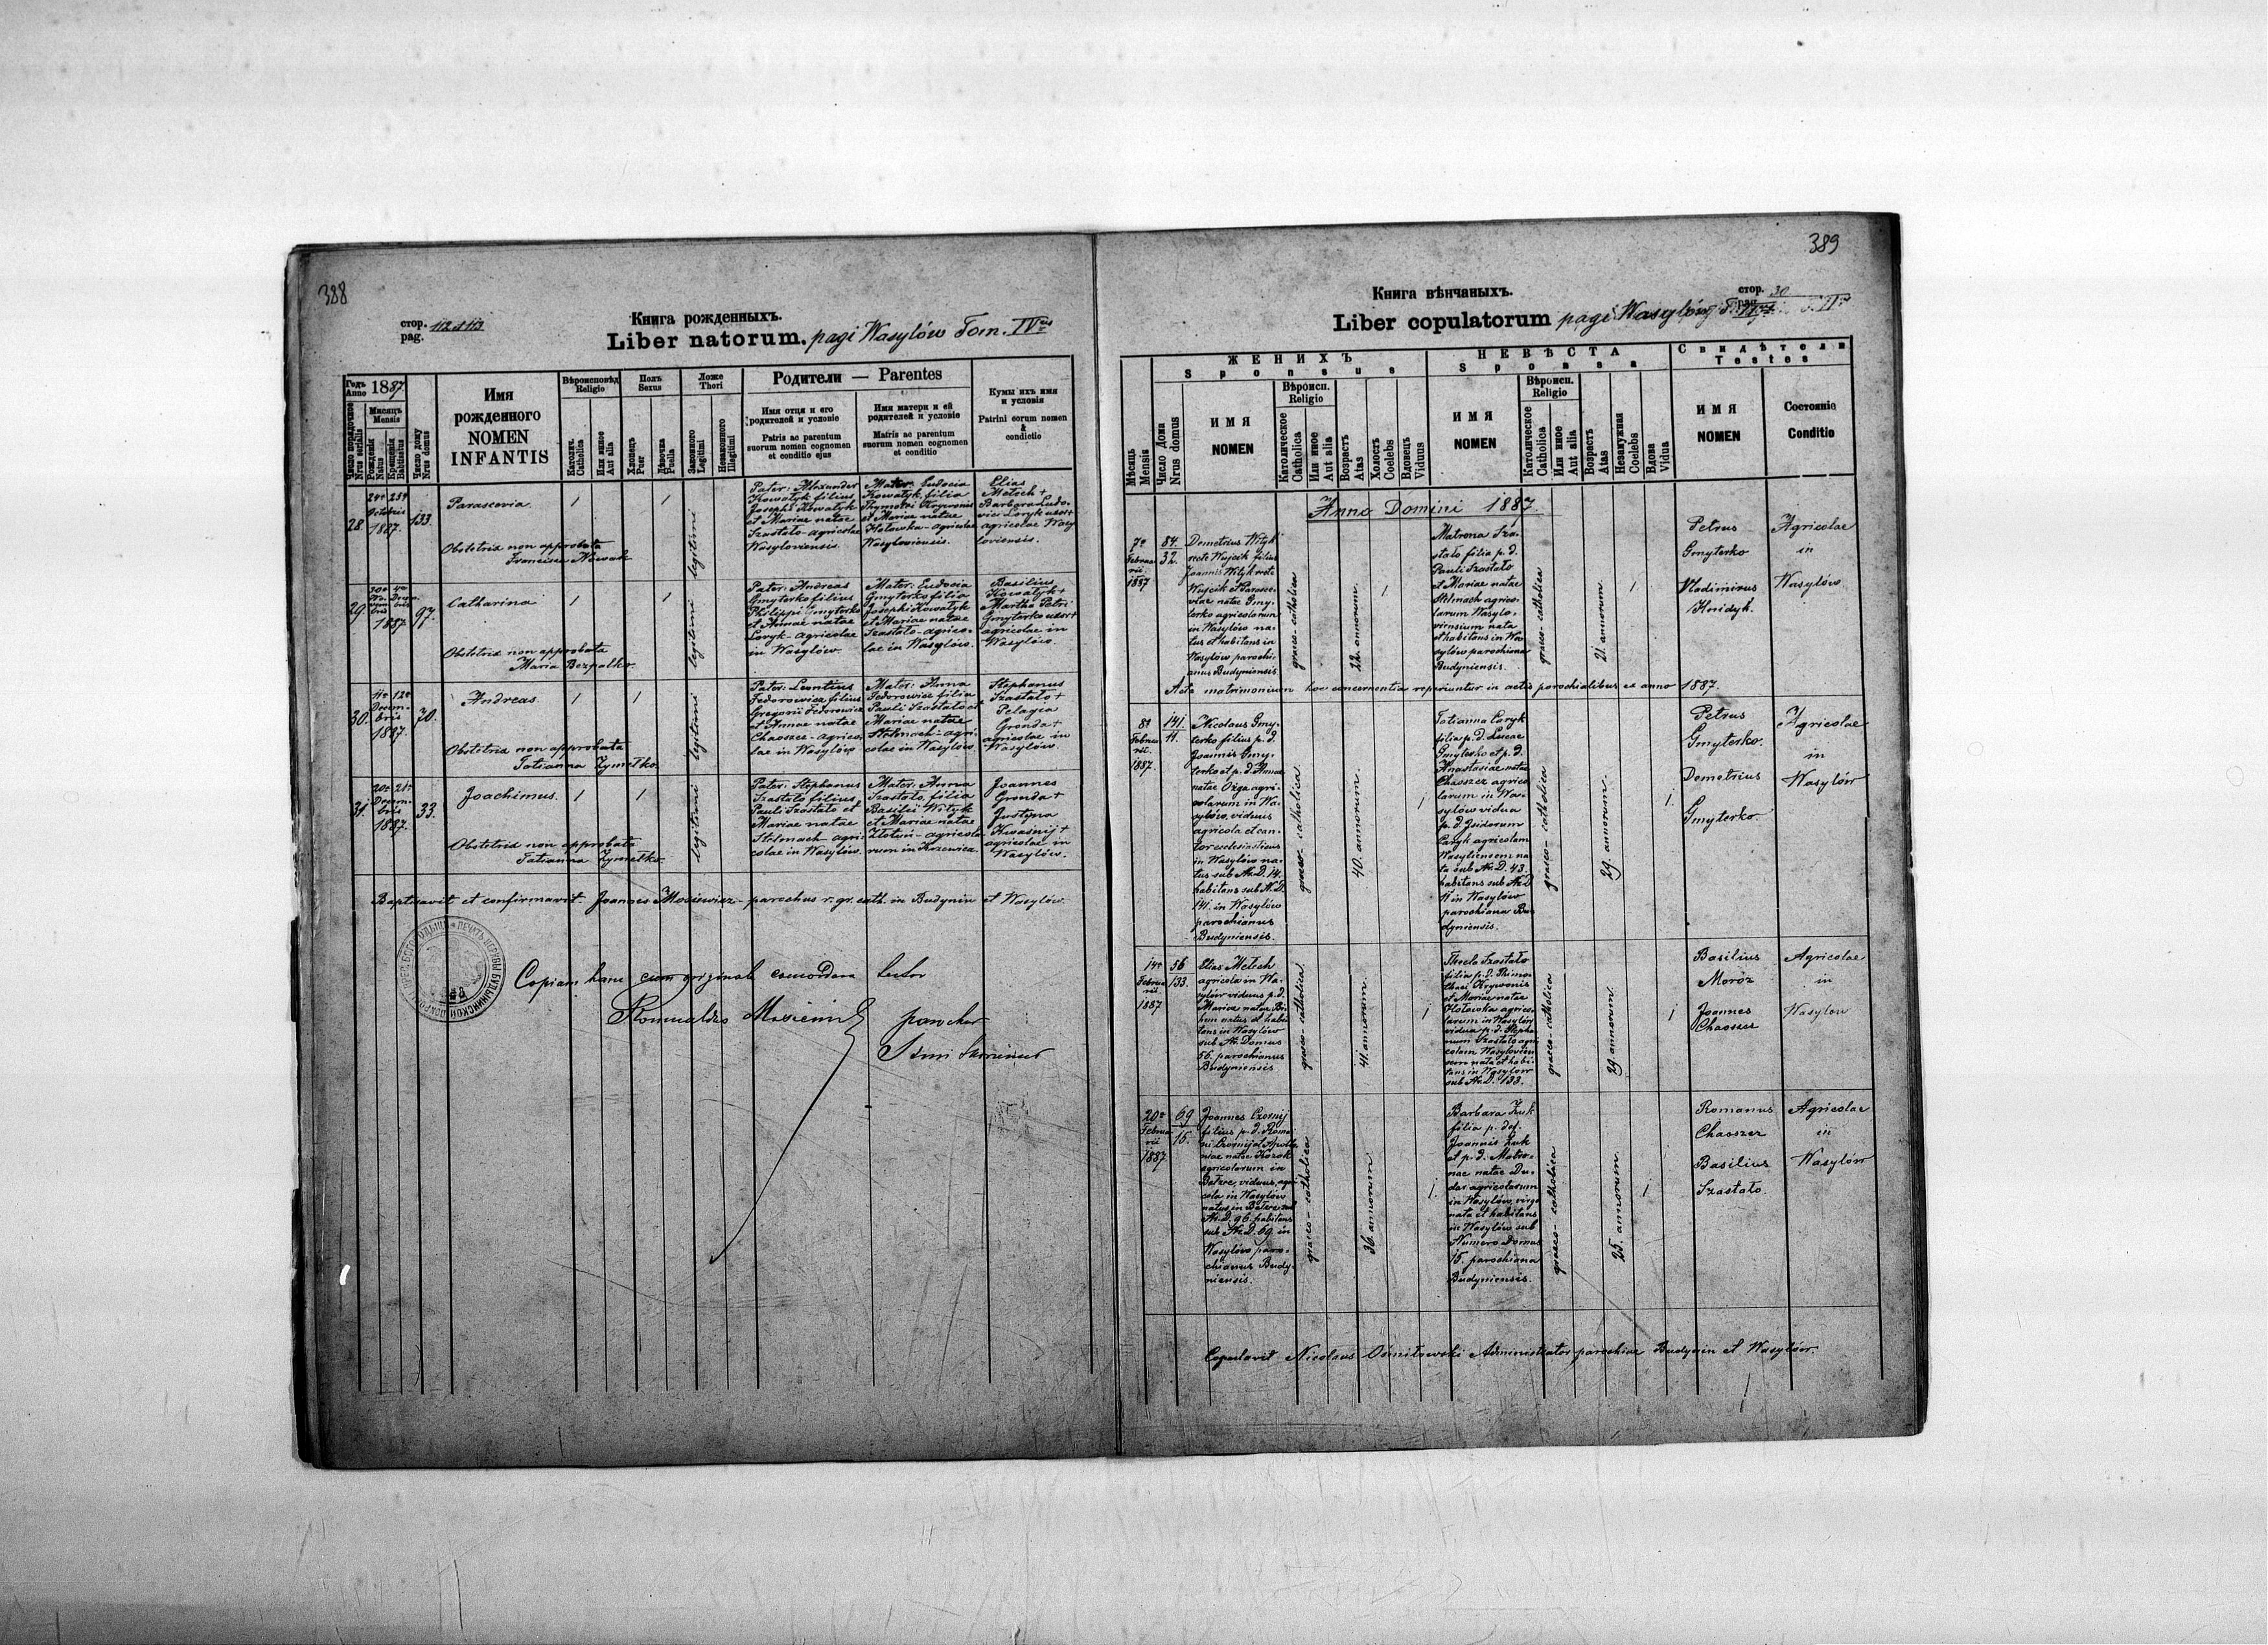 388
стор. 112 et 113
pag.
Книга рожденныхъ.
Liber natorum. pagi Wasylów Tom. IVus
Годъ 1887
Anno
Число порядочное
Nrus serialis
Мѣсяцъ
Mensis
Рожденія
Natus
Крещенія
Babtisatus
Число дому
Nrus domus
Имя
рожденного
NOMEN
INFANTIS
Вѣроисповѣд
Religio
Католич.
Catholica
Или инное
Aut alia
Полъ
Sexus
Хлопець
Puer
Дѣвочка
Puella
Ложе
Thori
Законного
Legitimi
Незаконного
Illegitimi
Родители — Parentes
Имя отца и его
родителей и условіе
Patris ac parentum
suorum nomen cognomen
et conditio ejus
Имя матери и ей
родителей и условіе
Matris ac parentum
suorum nomen cognomen
et conditio
Кумы ихъ имя
и условія
Patrini eorum nomen
&
condictio
28.
24a 25a
Octobris
1887.
133.
Parascevia
/
/
legitimi
Obstetrix non approbata
Francisca Nowak
Pater: Alexander
Kowatyk filius
Josephi Kowatyk
et Mariae natae
Szastało agricolae
Wasyloviensis.
Mater: Eudocia
Kowatyk filia
Thymotei Krywonis
et Mariae natae
Hołowka - agricolae
Wasyloviensis.
Elias
Melech +
Barbara Ludo-
vici Loryk uxor +
agricolae Wasy
loviensis.
29.
30a 4a
No- Decem.
vem- bris
bris
1887.
97.
Catharina
/
/
legitimi
Obstetrix non approbata
Maria Bezpałko.
Pater: Andreas
Gmyterko filius
Philippi Gmyterko
et Annae natae
Loryk - agricolae
in Wasylów.
Mater: Eudocia
Gmyterko filia
Josephi Kowatyk
et Mariae natae
Szastało - agrico-
lae in Wasylów.
Basilius
Kowatyk +
Martha Petri
Gmyterko uxor +
agricolae in
Wasylów.
30.
11a 12a
Decem-
bris
1887.
70.
Andreas
/
/
legitimi
Obstetrix non approbata
Tatianna Zymełko.
Pater: Leontius
Fedorowicz filius
Gregorii Fedorowicz
et Annae natae
Chaoszcz - agrico-
lae in Wasylów
Mater: Anna
Fedorowicz filia
Pauli Szastało et
Mariae natae
Stelmach - agri-
colae in Wasylów
Stephanus
Szastało +
Pelagia
Gronda +
agricolae in
Wasylów
31.
20a 21a
Decem-
bris
1887.
33.
Joachimus.
/
/
legitimi
Obstetrix non approbata
Tatianna Zymełko.
Pater: Stephanus
Szastało filius
Pauli Szastało et
Mariae natae
Stelmach - agri-
colae in Wasylów.
Mater: Anna
Szastało, filia
Basilii Wityk
et Mariae natae
Złotiń - agricola-
rum in Korczewicz
Joannes
Gronda +
Justyna
Kwasnij +
agricolae in
Wasylów.
Baptisavit et confirmavit Joannes Mosiewicz - parochus r. gr. cath. in Budynin et Wasylów.
Copiam hanc cum originali concordare testor
parochus
389
Книга вѣнчаныхъ.
стор. 30
pag.
Liber copulatorum pagi Wasylów T. IIus
Мѣсяць
Mensis
Число дома
Nrus domus
ЖЕНИХЪ
Sponsus
ИМЯ
NOMEN
Вѣроисп.
Religio
Католическое
Catholica
Или инное
Aut alia
Возрастъ
Atas
Холостъ
Coelebs
Вдовецъ
Viduus
НЕВѢСТА
Sponsa
ИМЯ
NOMEN
Вѣроисп.
Religio
Католическое
Catholica
Или инное
Aut alia
Возрастъ
Atas
Незамужная
Coelebs
Вдова
Vidua
Свидѣтели
Testes
ИМЯ
NOMEN
Состояніе
Conditio
Anno Domini 1887.
7a
Februa-
rii
1887
84.
32.
Demetrius Wityk
recte Wujcik filius
Joannis Wityk recte
Wujcik et Parasce-
viae natae Gmy-
terko agricolarum
in Wasylów na-
tus et habitans in
Wasylów parochi-
anus Budyniensis
graeco-catholica
22. annorum
/
Matrona Sza-
stało filia p. d.
Pauli Szastało
et Mariae natae
Stelmach agrico-
larum Wasylo-
viensium nata
et habitans in Wa-
sylów parochiana
Budyniensis.
graeco-catholica
21. annorum
/.
Petrus
Gmyterko
Vladimirus
Hnidyk.
Agricolae
in
Wasylów
Acta matrimonium hoc concernentia reperiuntur in actis parochialibus ex anno 1887.
8a
Februa-
rii.
1887.
141.
11.
Nicolaus Gmy-
terko filius p. d.
Joannis Gmy-
terko et p. d. Annae
natae Ożga agri-
colarum in Wa-
sylów, viduus
agricola et can-
tor ecclesiasticus
in Wasylów na-
tus sub Nr. D. 14.
habitans sub Nr. D.
141. in Wasylów
parochianus
Budyniensis.
graeco-catholica
40. annorum.
/
Tatianna Loryk
filia p. d. Lucae
Gmyterko et p. d.
Anastasiae natae
Chaoszcz agrico
larum in Wa-
sylów vidua
p. d. Isidorum
Loryk agricolam
Wasyliensem na
ta sub Nr. D. 43.
habitans sub Nr. D
11 in Wasylów
parochiana Bu
dyniensis.
graeco-catholica
29. annorum.
/.
Petrus
Gmyterko.
Demetrius
Gmyterko.
Agricolae
in
Wasylów
14a
Februa
rii
1887
56
133.
Elias Melech
agricola in Wa-
sylów viduus p. d.
Mariae natae
natus et habi-
tans in Wasylów
sub Nr. Domus
56. parochianus
Budyniensis
graeco-catholica.
41. annorum.
/
Thecla Szastało
filia p. d. Thimo-
thaei Krywonis
et Mariae natae
Hołowka agrico-
larum in Wasylów
vidua p. d. Stepha-
num Szastało agri
colam Wasylovien
sem nata et habi-
tans in Wasylów
sub Nr. D. 133.
graeco-catholica
29. annorum.
/
Basilius
Moroz
Joannes
Chaoszcz
Agricolae
in
Wasylow
20a
Februa
rii
1887
69
15.
Joannes Czornij
filius p. d. Roma-
ni Czornij et Apollo
niae natae Kozak
agricolarum in
Bełzec, viduus, agri
cola in Wasylów
natus in Bełzec sub
Nr. D. 96. habitans
sub Nr. D. 69. in
Wasylów paro-
chianus Budy-
niensis.
graeco-catholica
36. annorum.
/.
Barbara Żuk
filia p. def.
Joannis Żuk
et p. d. Matro-
nae natae Du-
dar agricolarum
in Wasylów, virgo
nata et habitans
in Wasylów sub
Numero Domus
15. parochiana
Budyniensis.
graeco-catholica
25. annorum.
/
Romanus
Chaoszcz
Basilius
Szastało.
Agricolae
in
Wasylów
Copulavit Nicolaus Ośmiłowski Administrator parochiae Budynin et Wasylów